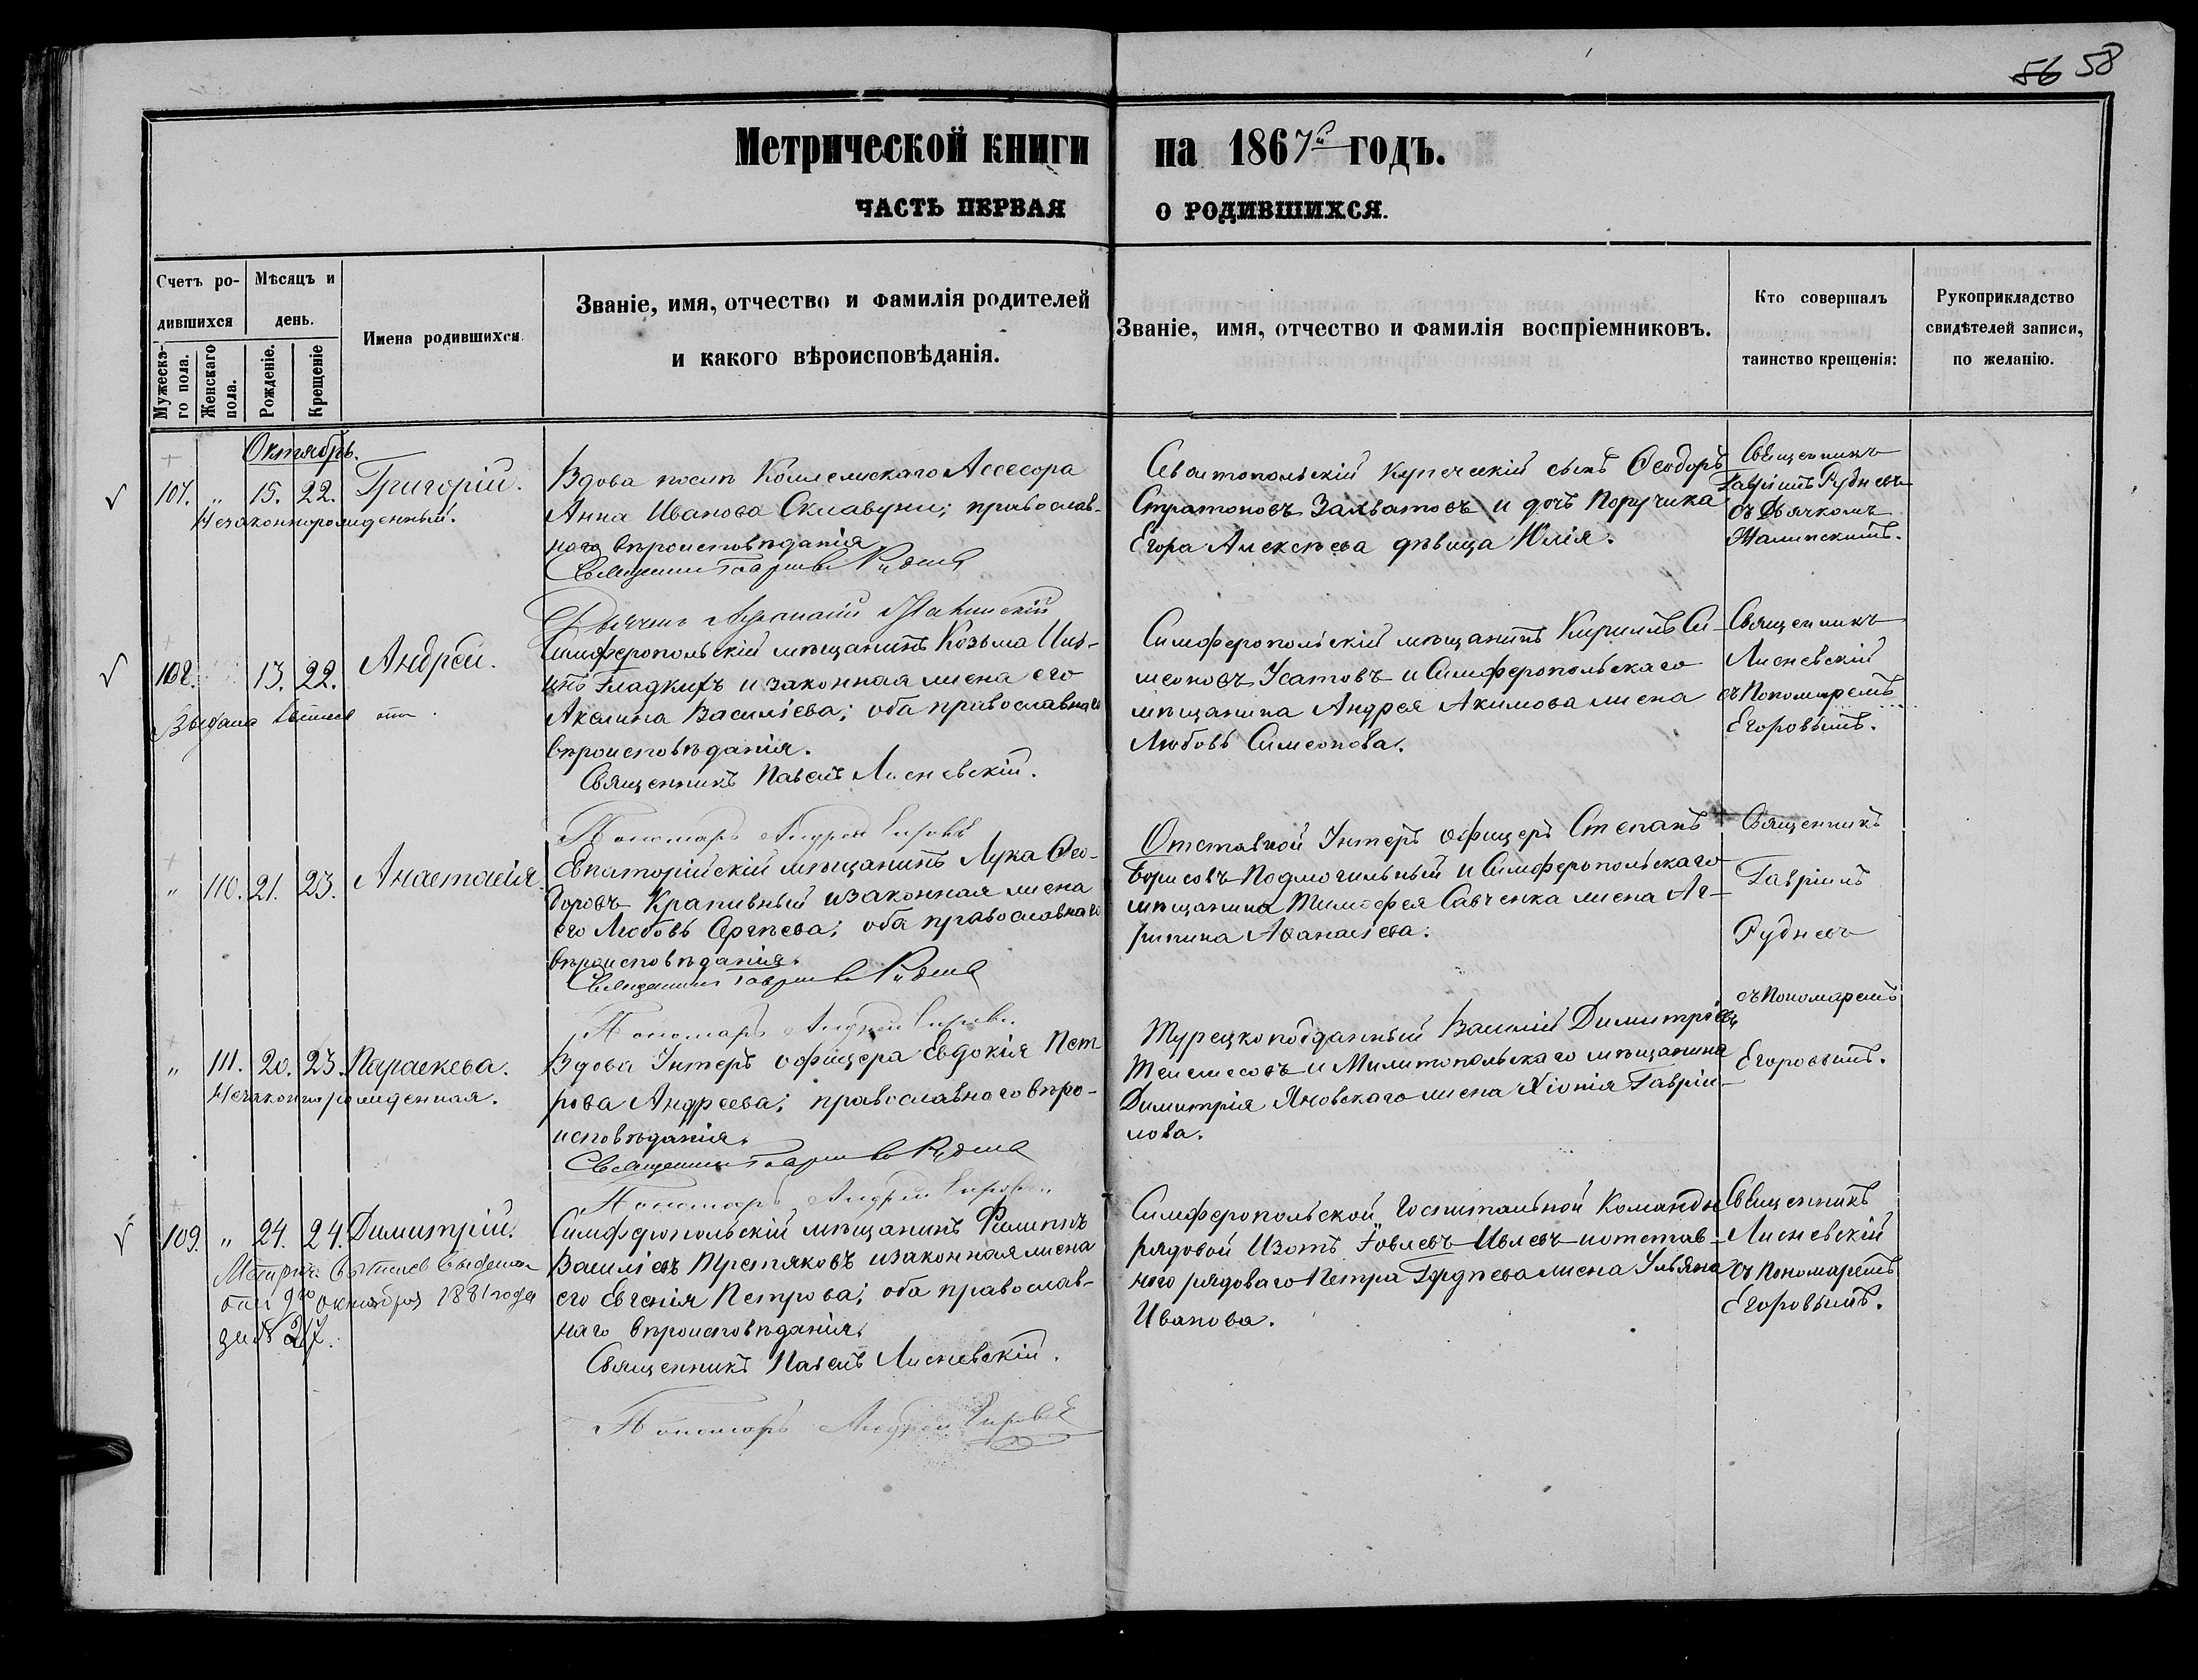 56 58
Метрической книги на 1867й годъ.
ЧАСТЬ ПЕРВАЯ О РОДИВШИХСЯ.
Счетъ ро-
дившихся
Мужеска-
го пола.
Женскаго
пола.
Мѣсяцъ и
день.
Рожденіе.
Крещеніе
Имена родившихся.
Званіе, имя, отчество и фамилія родителей
и какого вѣроисповѣданія.
Званіе, имя, отчество и фамилія воспріемниковъ.
Кто совершалъ
таинство крещенія:
Рукоприкладство
свидѣтелей записи,
по желанію.
Октябрь.
107. „ 15. 22. Григорій.
Незаконнорожденный.
Вдова послѣ Коллежскаго Ассесора
Анна Иванова Склавуни; православ-
наго вѣроисповѣданія
Священникъ Гавріилъ Рудневъ
Севастопольскій купеческій сынъ Ѳеодоръ
Стратоновъ Захватовъ и дочь Поручика
Егора Алексѣева дѣвица Юлія.
Священникъ
Гавріилъ Рудневъ
съ Дьячкомъ
108. 13. 22. Андрей.
Симферопольскій мѣщанинъ Козьма
Гладкихъ и законная жена его
Акелина Василіева; оба православнаго
вѣроисповѣданія.
Священникъ Павелъ Лисневскій.
Пономарь Андрей Егоровъ
Симферопольскій мѣщанинъ Кириллъ Си-
меоновъ Усатовъ и Симферопольскаго
мѣщанина Андрея Акимова жена
Любовь Симеонова.
Священникъ
Лисневскій
съ Пономаремъ
Егоровымъ.
„ 110. 21. 23. Анастасія
Евпаторійскій мѣщанинъ Лука Ѳео-
доровъ Крапивный и законная жена
его Любовь Сергѣева; оба православнаго
вѣроисповѣданія.
Священникъ Гавріилъ Рудневъ
Пономарь Андрей Егоровъ
Отставной Унтеръ офицеръ Степанъ
Борисовъ Подмогильный и Симферопольскаго
мѣщанина Тимофея Савченка жена Аг-
рипина Аѳанасіева.
Священникъ
Гавріилъ
Рудневъ
съ Пономаремъ
Егоровымъ.
„ 111. 20. 23. Параскева.
Незаконнорожденная.
Вдова Унтеръ офицера Евдокія Пет
рова Андреева; православнаго вѣро-
исповѣданія.
Священникъ Гавріилъ Рудневъ
Пономарь Андрей Егоровъ
Турецкоподданный Василій Димитріевъ
и Милитопольскаго мѣщанина
Димитрія Яновскаго жена Хіонія Гаврии-
лова.
109. „ 24. 24. Димитрій.
Метрич. выдано
9го октября 1881 года
за № 217.
Симферопольскій мѣщанинъ Филиппъ
Василіевъ Третяковъ и законная жена
его Евгенія Петрова; оба православ-
наго вѣроисповѣданія.
Священникъ Павелъ Лисневскій.
Пономарь Андрей Егоровъ
Симферопольской Госпитальной Команды
рядовой Изотъ Іовлевъ Ивлевъ и отстав-
наго рядоваго Петра Гордѣева жена Ульяна
Иванова.
Священникъ
Лисневскій
съ Пономаремъ
Егоровымъ.